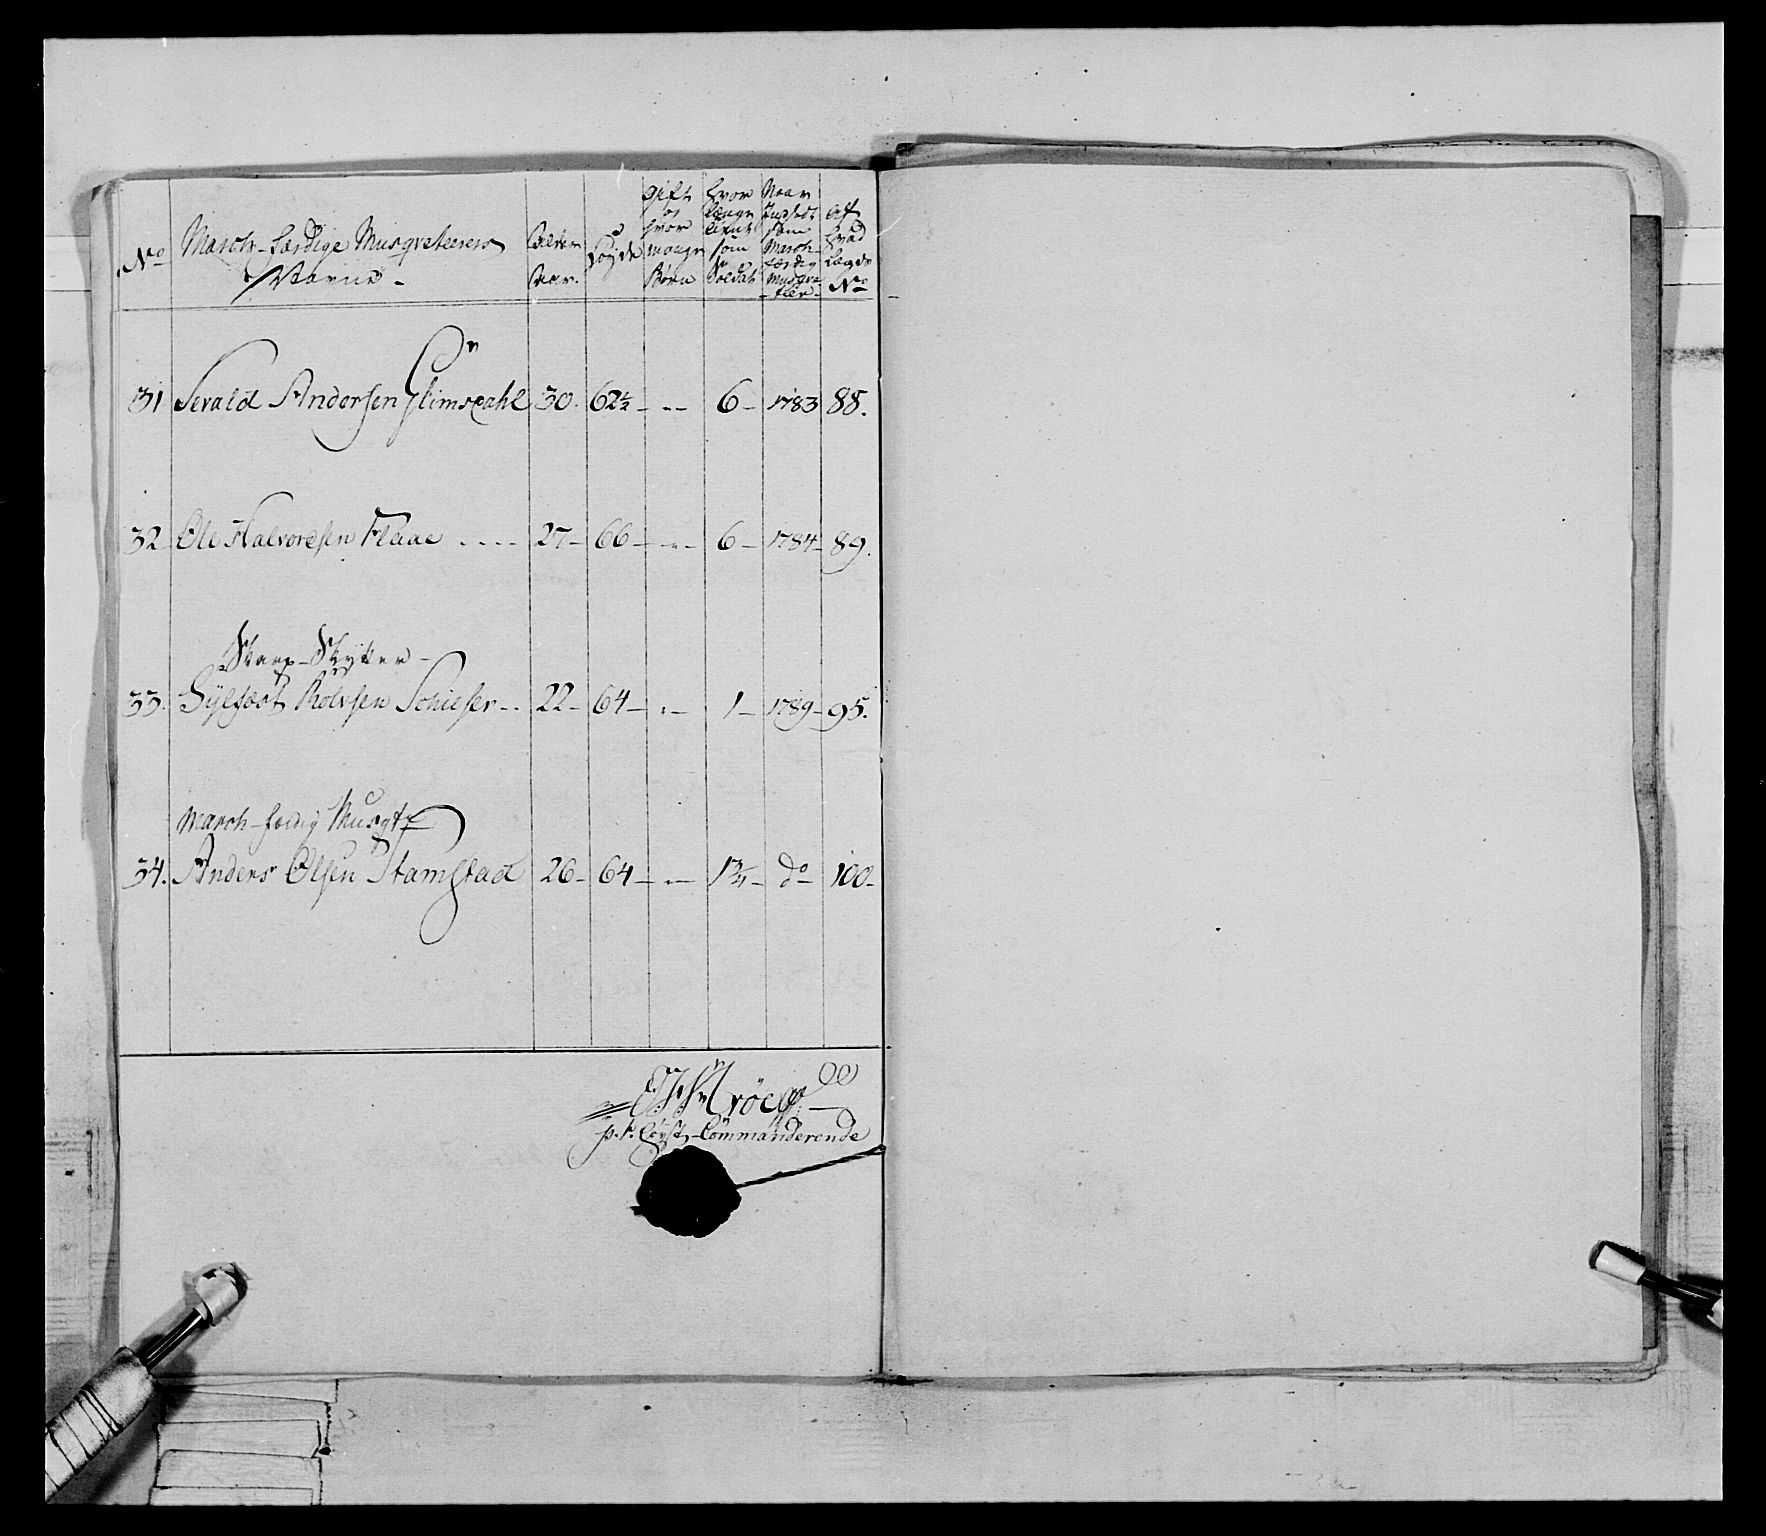 No
March-færdige Musqveteerers
Navne -
Alder
Aar.
Høyde
Gift
og
hvor
mange
Børn
Hvor
længe
tient
som
Soldat
Naar
Indsadt
som
March-
færdig
Musqve-
teer -
Af
hvad
Lægds
No
31 Sevald Andersen Glimsdahl 30. 62½ - - - 6 - 1783 88.
32 Ole Halvorsen Flaae - - - - 27 - 66 - - - 6 - 1784 - 89.
Skarp-Skytter -
33. Sylfæst Rolvsen - - 22 - 64 - - 1 - 1789 - 95.
March-færdig Musqt
34. Anders Olsen Stamstad 26 - 64 - - - 1¾ - do 100 -
p. t. Commanderende